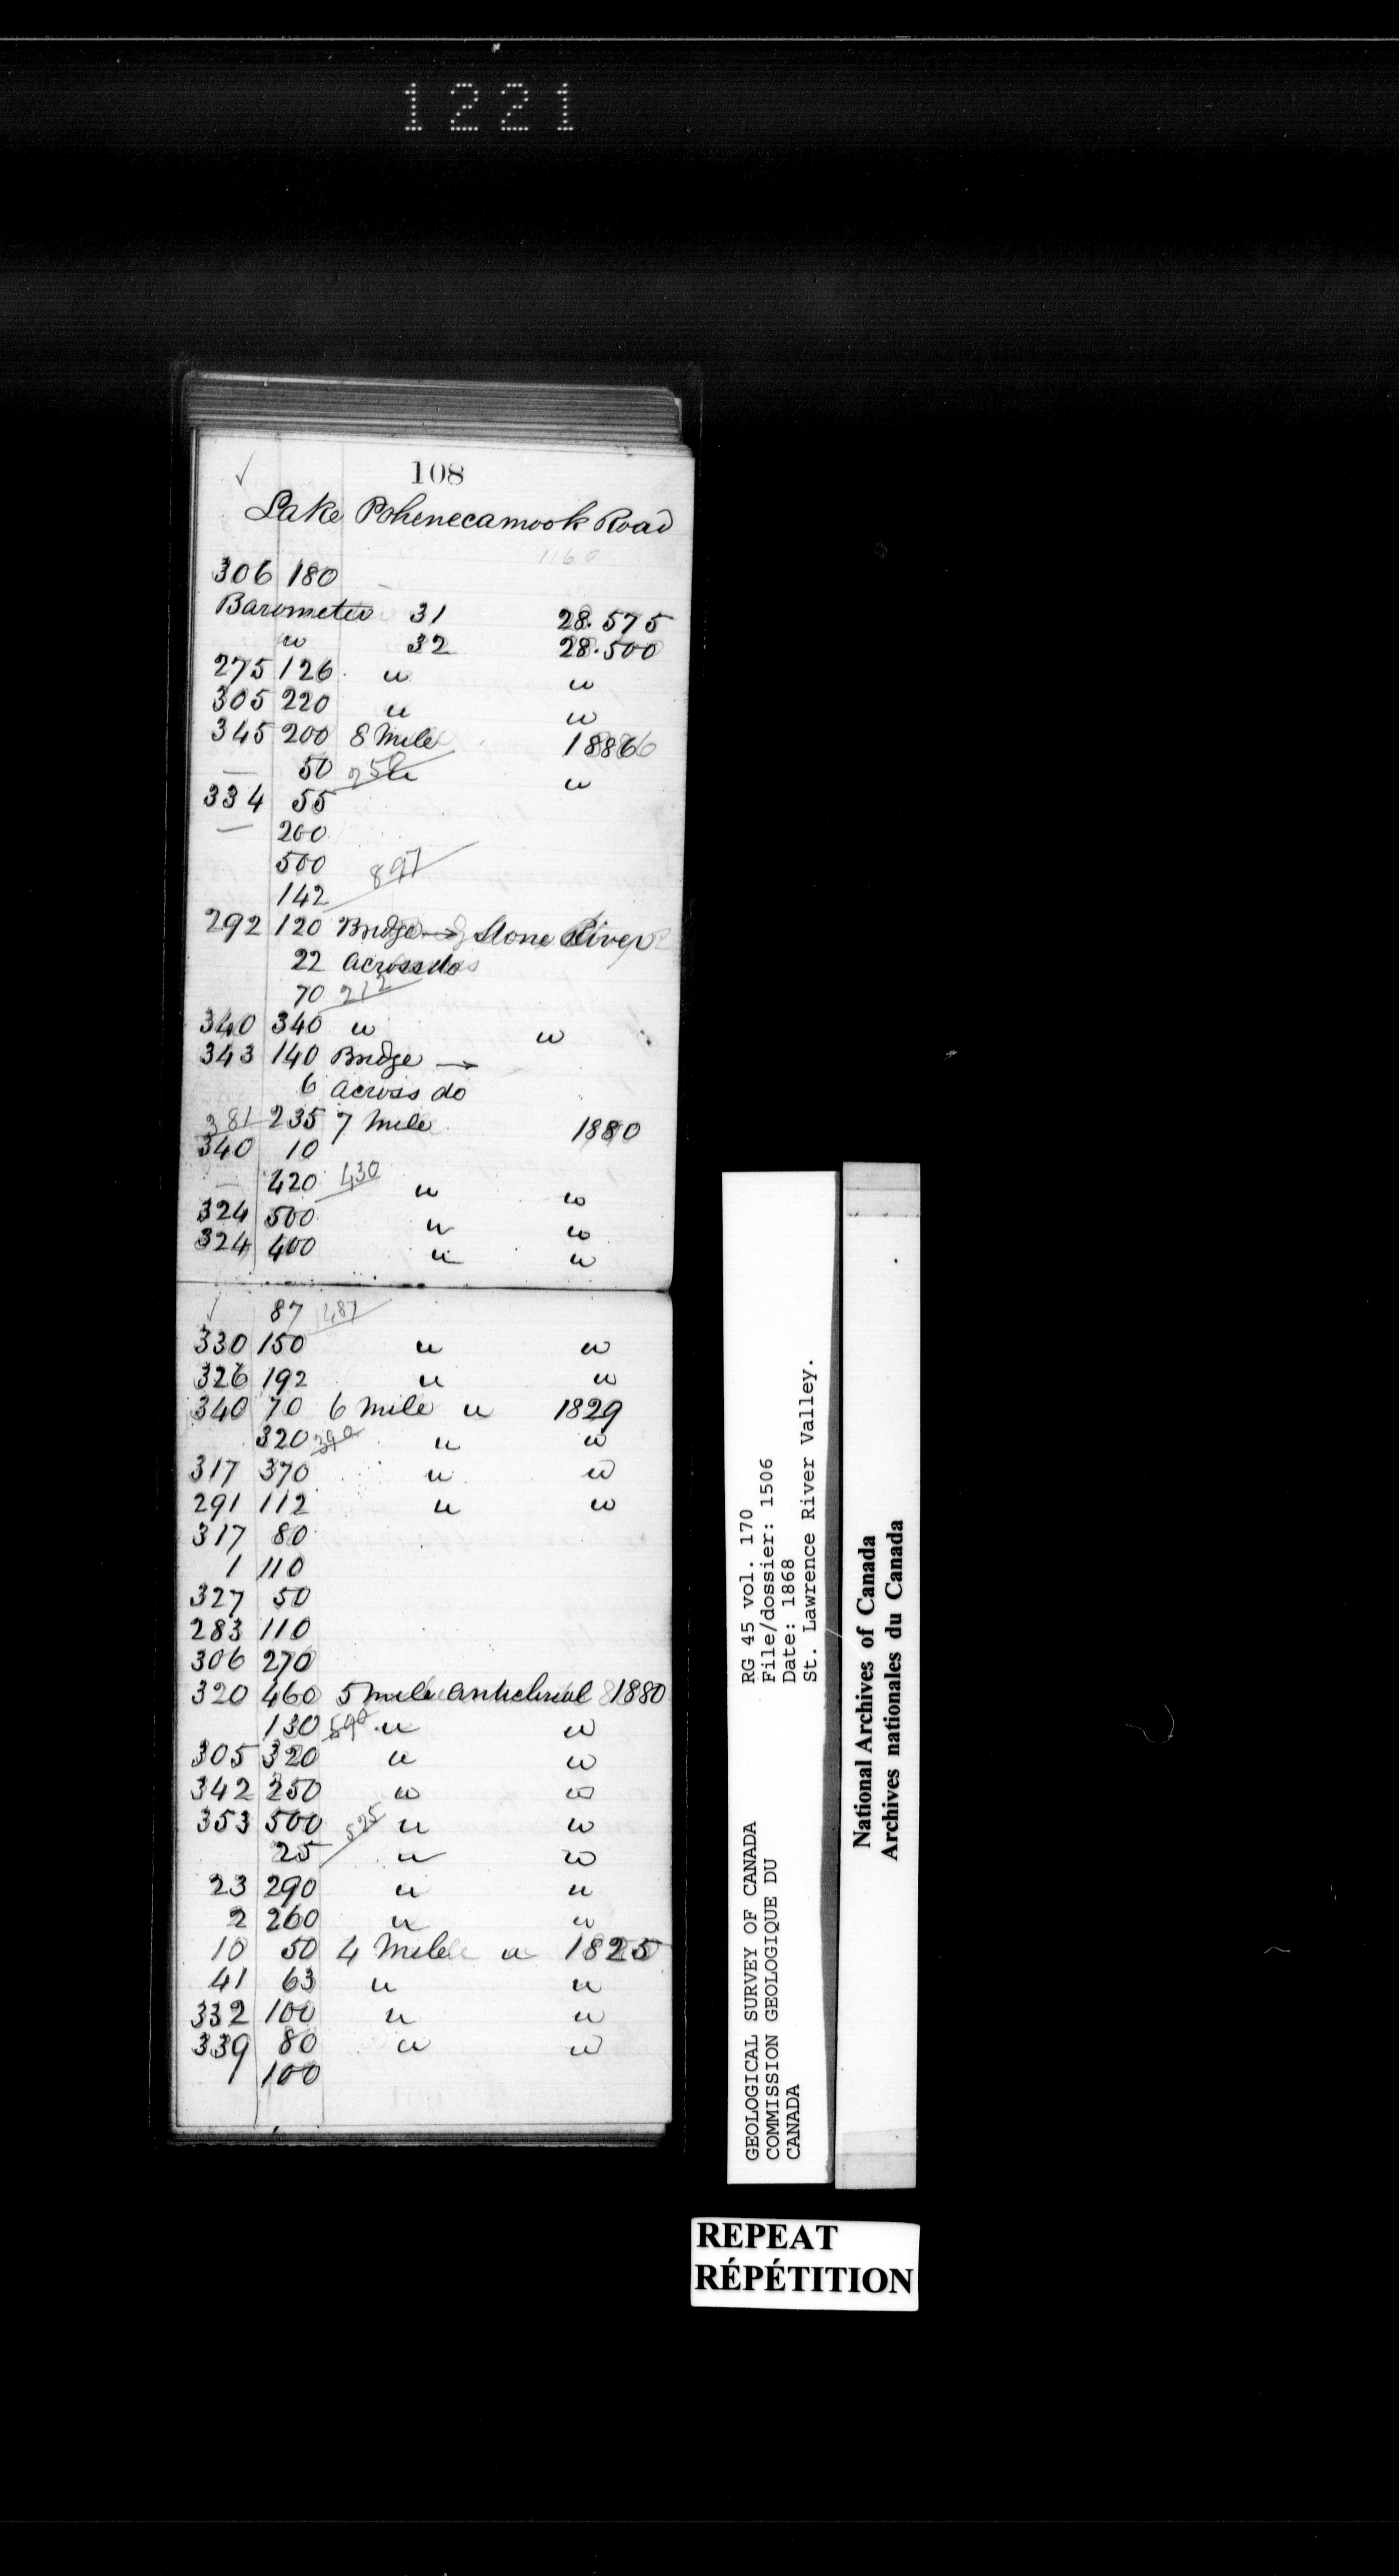 1221
✓ 108
Lake Pohenecamook Road
1160
306 180 -
Barometer 31 28.575
" 32 28.500
275 126 " "
305 220 " "
345 200 8 Mile 1886
— 50 250 " "
334 55
— 200
500
142 897
292 120 Bridge → Stone River
22 Across do
70 212
340 340 " "
343 140 Bridge →
6 across do
381 235 7 Mile 1880
340 10
— 420 430 " "
324 500 " "
324 400 " "
✓ 87 487
330 150 " "
326 192 " "
340 70 6 Mile " 1829
320 390 " "
317 370 " "
291 112 " "
317 80
1 110
327 50
283 110
306 270
320 460 5 Mile Anticlinal 1880
130 590 " "
305 320 " "
342 250 " "
353 500 525 " "
25 " "
23 290 " "
2 260 " "
10 50 4 Mile " 1825
41 63 " "
332 100 " "
339 80 " "
1 100
GEOLOGICAL SURVEY OF CANADA
COMMISSION GEOLOGIQUE DU
CANADA
RG 45 vol. 170
File/dossier: 1506
Date: 1868
St. Lawrence River Valley.
National Archives of Canada
Archives nationales du Canada
REPEAT
RÉPÉTITION